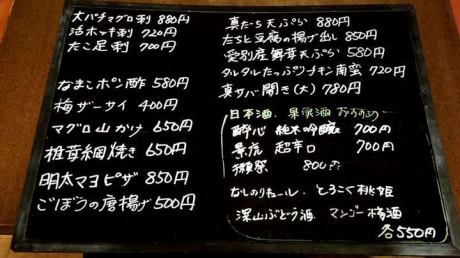 大バチマグロ刺 880円
活ホッキ刺 720円
たこ足刺 700円
なまこポン酢 580円
梅ザーサイ 400円
マグロ山かけ 650円
椎茸網焼き 650円
明太マヨピザ 850円
ごぼうの唐揚げ 500円
真だち天ぷら 880円
たちと豆腐の揚げ出し 850円
愛別産舞茸天ぷら 580円
タルタルたっぷりチキン南蛮 720円
真サバ開き(大) 780円
日本酒.果実酒 おすすめ
酔心 純米吟醸 700円
景虎 超辛口 700円
獺祭 800円
なしのリキュール. とろこく桃姫
深山ぶどう酒. マンゴー梅酒
各550円